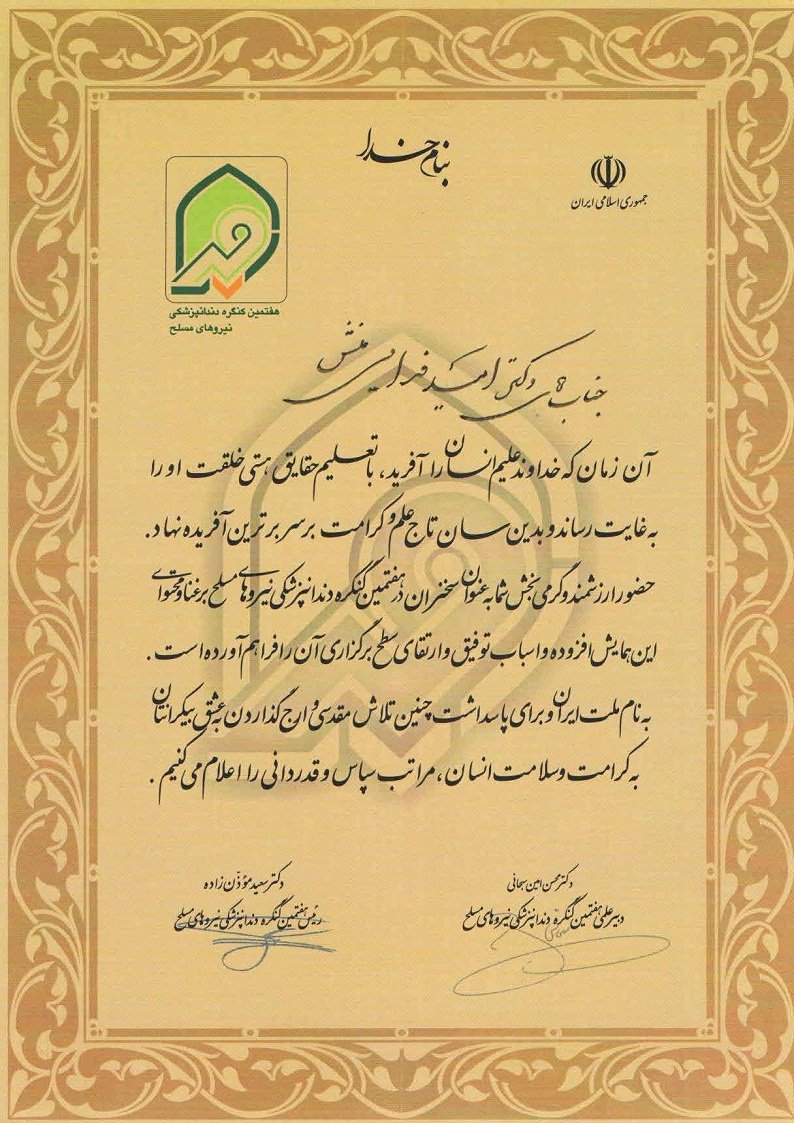 بنام خدا
جمهوری اسلامی ایران
هفتمین کنگره دندانپزشکی
نیروهای مسلح
جناب آقای دکتر امید فدرایی منش
آن زمان که خداوند علیم انسان را آفرید، با تعلیم حقایق هستی خلقت او را
به غایت رساند و بدین سان تاج علم و کرامت بر سر برترین آفریده نهاد.
حضور ارزشمند و گرمی بخش شما به عنوان سخنران در هفتمین کنگره دندانپزشکی نیروهای مسلح بر غنا و محتوای
این همایش افزوده و اسباب توفیق و ارتقای سطح برگزاری آن را فراهم آورده است.
به نام ملت ایران و برای پاسداشت چنین تلاش مقدسی و ارج گذاردن به عشق بیکرانتان
به کرامت و سلامت انسان، مراتب سپاس و قدردانی را اعلام می کنیم.
دکتر محسن امین سبحانی
دبیر علمی هفتمین کنگره دندانپزشکی نیروهای مسلح
دکتر سعید مؤذن زاده
رئیس هفتمین کنگره دندانپزشکی نیروهای مسلح